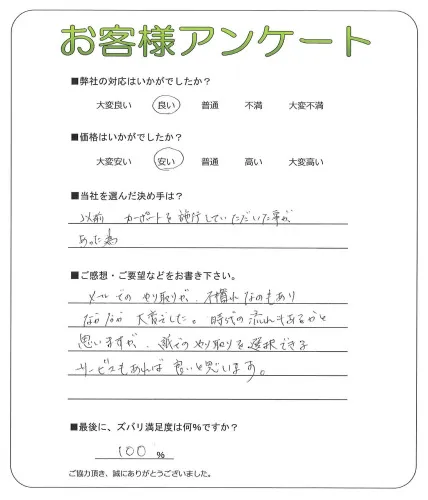 お客様アンケート
■弊社の対応はいかがでしたか？
大変良い 良い 普通 不満 大変不満
■価格はいかがでしたか？
大変安い 安い 普通 高い 大変高い
■当社を選んだ決め手は？
以前 カーポートを施行していただいた事が
あった為
■ご感想・ご要望などをお書き下さい。
メールでの やり取りが、不慣れなのもあり
なかなか 大変でした。時代の流れもあるかと
思いますが、紙でのやり取りを選択できる
サービスもあれば 良いと思います。
■最後に、ズバリ満足度は何％ですか？
100 ％
ご協力頂き、誠にありがとうございました。